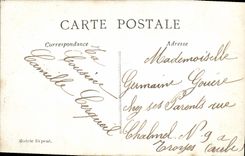 CARTE POSTALE
Correspondance
Adresse
Ta
Cousine
Camille
Mademoiselle
Germaine Gouère
chez ses Parents rue
Chalmel N° 9 a
Troyes (aube)
Modèle Déposé.